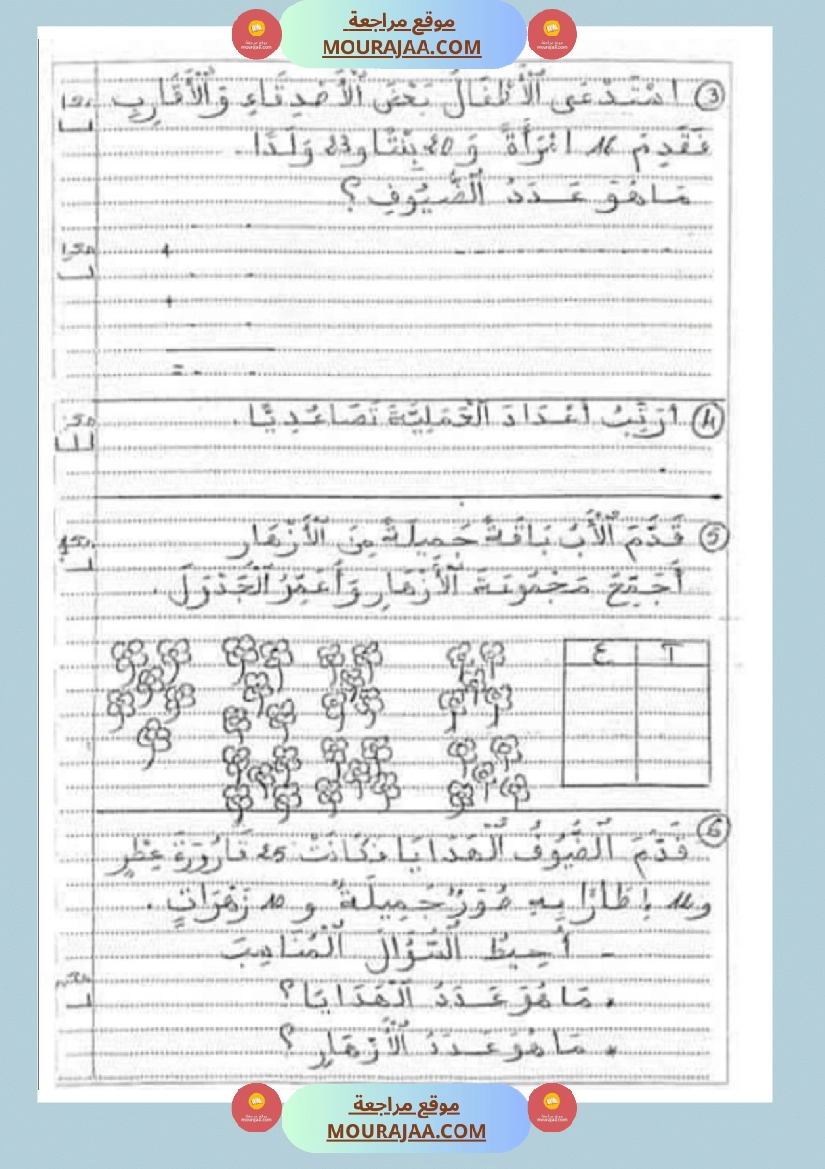 موقع مراجعة
MOURAJAA.COM
③ اسْتَدْعَى الْأَطْفَالُ بَعْضَ الْأَصْدِقَاءِ وَالْأَقَارِبِ
فَقَدِمَ 16 امْرَأَةً وَ 20 بِنْتًا و 23 وَلَدًا.
مَا هُوَ عَدَدُ الضُّيُوفِ؟
+
+
=
④ أُرَتِّبُ أَعْدَادَ الْعَمَلِيَّةِ تَصَاعُدِيًّا.
⑤ قَدَّمَ الْأَبُ بَاقَةً جَمِيلَةً مِنَ الْأَزْهَارِ
أُجَمِّعُ مَجْمُوعَةَ الْأَزْهَارِ وَأُعَمِّرُ الْجَدْوَلَ.
ع
⑥
قَدَّمَ الضُّيُوفُ الْهَدَايَا فكَانَتْ 25 قَارُورَةَ عِطْرٍ
و إِطَارًا بِهِ صُوَرٌ جَمِيلَةٌ و 10 زَهْرَاتٍ.
- أُحِيطُ السُّؤَالَ الْمُنَاسِبَ
• مَا هُوَ عَدَدُ الْهَدَايَا؟
• مَا هُوَ عَدَدُ الْأَزْهَارِ؟
موقع مراجعة
MOURAJAA.COM